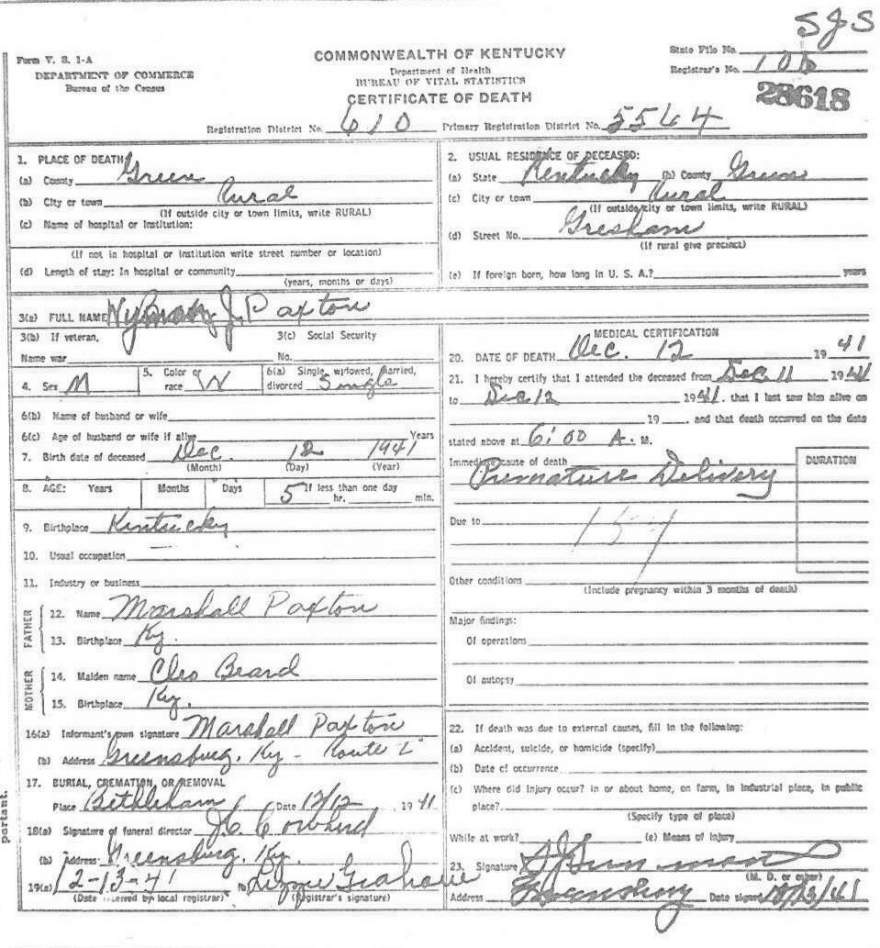 SJS
Form V. S. 1-A
DEPARTMENT OF COMMERCE
Bureau of the Census
COMMONWEALTH OF KENTUCKY
Department of Health
BUREAU OF VITAL STATISTICS
CERTIFICATE OF DEATH
State File No.
Registrar's No. 106
28618
Registration District No. 610 Primary Registration District No. 5564
1. PLACE OF DEATH:
(a) County Green
(b) City or town Rural
(If outside city or town limits, write RURAL)
(c) Name of hospital or institution:
(If not in hospital or institution write street number or location)
(d) Length of stay: In hospital or community
(years, months or days)
2. USUAL RESIDENCE OF DECEASED:
(a) State Kentucky (b) County Green
(c) City or town Rural
(If outside city or town limits, write RURAL)
(d) Street No. Gresham
(If rural give precinct)
(e) If foreign born, how long in U. S. A.? years
3(a) FULL NAME J. Paxton
3(b) If veteran, 3(c) Social Security
Name war No.
4. Sex M 5. Color or race W 6(a) Single, widowed, married, divorced Single
6(b) Name of husband or wife
6(c) Age of husband or wife if alive Years
7. Birth date of deceased Dec. 12 1941
(Month) (Day) (Year)
8. AGE: Years Months Days If less than one day
5 hr. min.
9. Birthplace Kentucky
10. Usual occupation
11. Industry or business
FATHER
12. Name Marshall Paxton
13. Birthplace Ky.
MOTHER
14. Maiden name Cleo Beard
15. Birthplace Ky.
16(a) Informant's own signature Marshall Paxton
(b) Address Greensburg, Ky - Route 2
17. BURIAL, CREMATION, OR REMOVAL
Place Bethleham Date 12/12 1941
18(a) Signature of funeral director J. C. Cowherd
(b) Address Greensburg, Ky.
19(a) 12-13-41 (b) Lizzie Graham
(Date received by local registrar) (Registrar's signature)
portant.
MEDICAL CERTIFICATION
20. DATE OF DEATH Dec. 12 1941
21. I hereby certify that I attended the deceased from Dec. 11 1941
to Dec 12 1941, that I last saw him alive on
19 , and that death occurred on the date
stated above at 6:00 A. M.
Immediate cause of death DURATION
Premature Delivery
Due to 159
Other conditions
(Include pregnancy within 3 months of death)
Major findings:
Of operations
Of autopsy
22. If death was due to external causes, fill in the following:
(a) Accident, suicide, or homicide (specify)
(b) Date of occurrence
(c) Where did injury occur? in or about home, on farm, in industrial place, in public
place?
(Specify type of place)
While at work? (e) Means of injury
23. Signature S J Simmons
(M. D. or other)
Address Greensburg Date signed 12/13/41